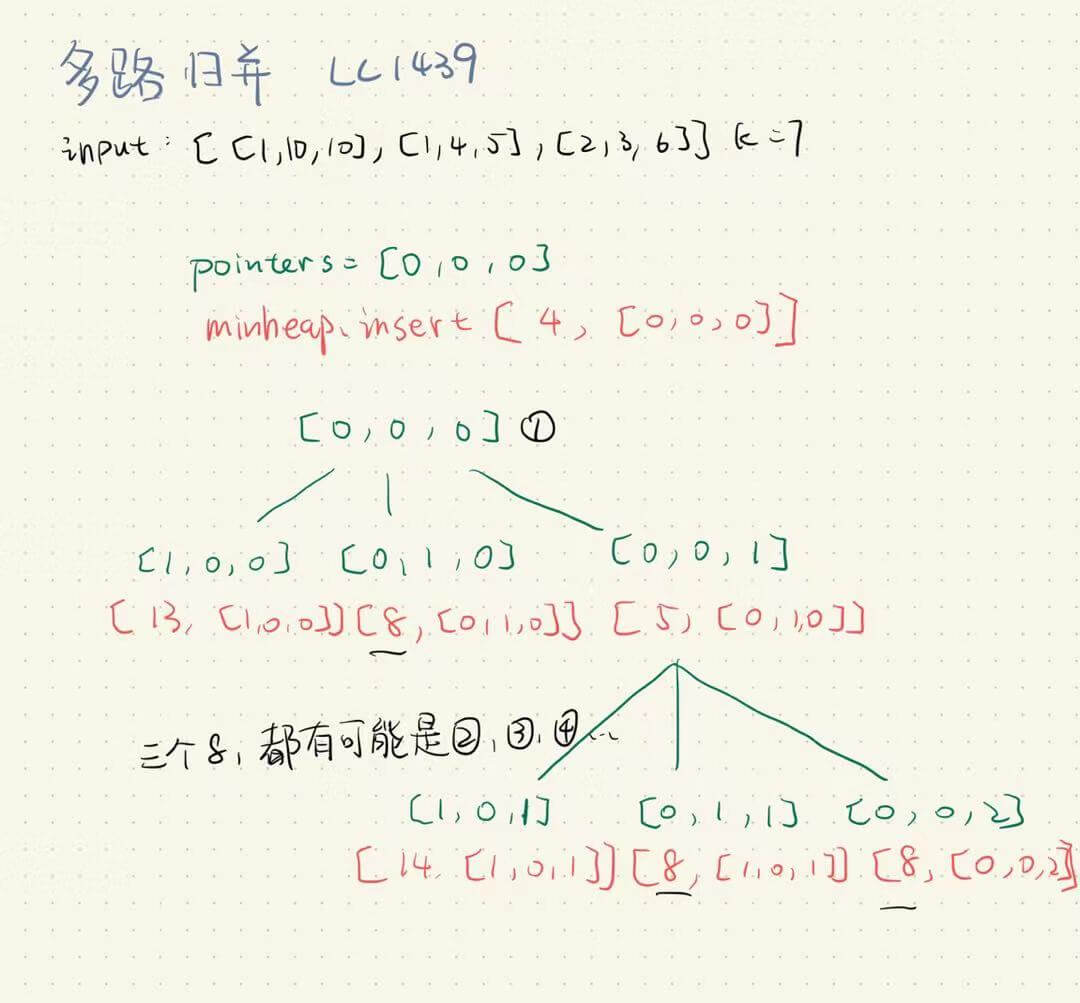 多路归并 LC1439
input: [[1,10,10],[1,4,5],[2,3,6]] k=7
pointers=[0,0,0]
minheap.insert[4,[0,0,0]]
[0,0,0]①
[1,0,0] [0,1,0] [0,0,1]
[13,[1,0,0]][8,[0,1,0]] [5,[0,1,0]]
三个8,都有可能是②,③,④...
[1,0,1] [0,1,1] [0,0,2]
[14,[1,0,1]][8,[1,0,1]] [8,[0,0,2]